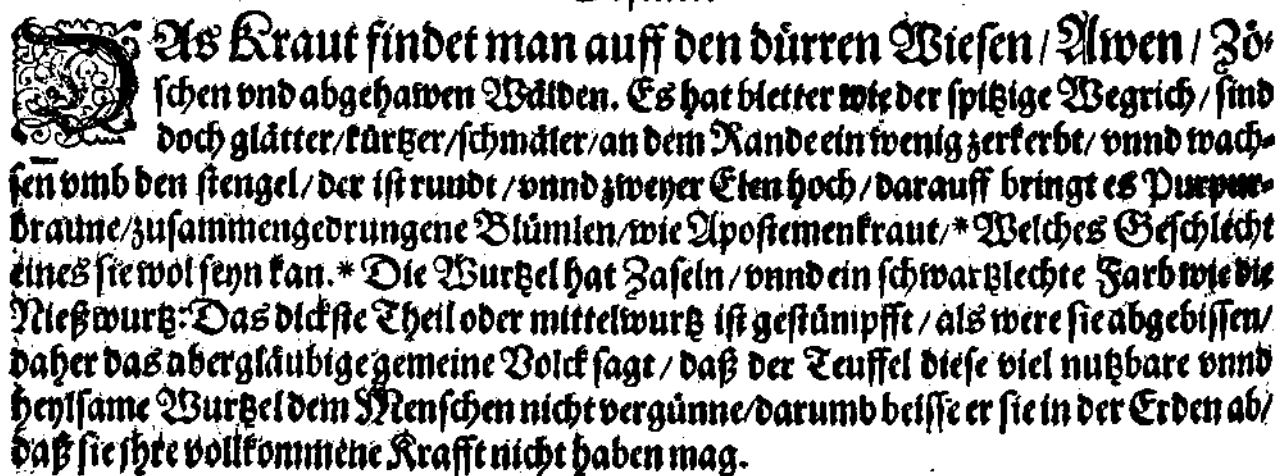 DAs Kraut findet man auff den dürren Wiesen / Awen / Zö-
schen vnd abgehawen Wälden. Es hat bletter wie der spitzige Wegrich / sind
doch glätter / kürtzer / schmäler / an dem Rande ein wenig zerkerbt / vnnd wach-
sen vmb den stengel / der ist rundt / vnnd zweyer Elen hoch / darauff bringt es Purpur-
braune / zusammengedrungene Blümlen / wie Apostemenkraut / * Welches Geschlecht
eines sie wol seyn kan. * Die Wurtzel hat Zaseln / vnnd ein schwartzlechte Farb wie die
Nießwurtz: Das dickste Theil oder mittelwurtz ist gestümpfft / als were sie abgebissen /
daher das abergläubige gemeine Volck sagt / daß der Teuffel diese viel nutzbare vnnd
heylsame Wurtzel dem Menschen nicht vergünne / darumb beisse er sie in der Erden ab /
daß sie jhre vollkommene Krafft nicht haben mag.